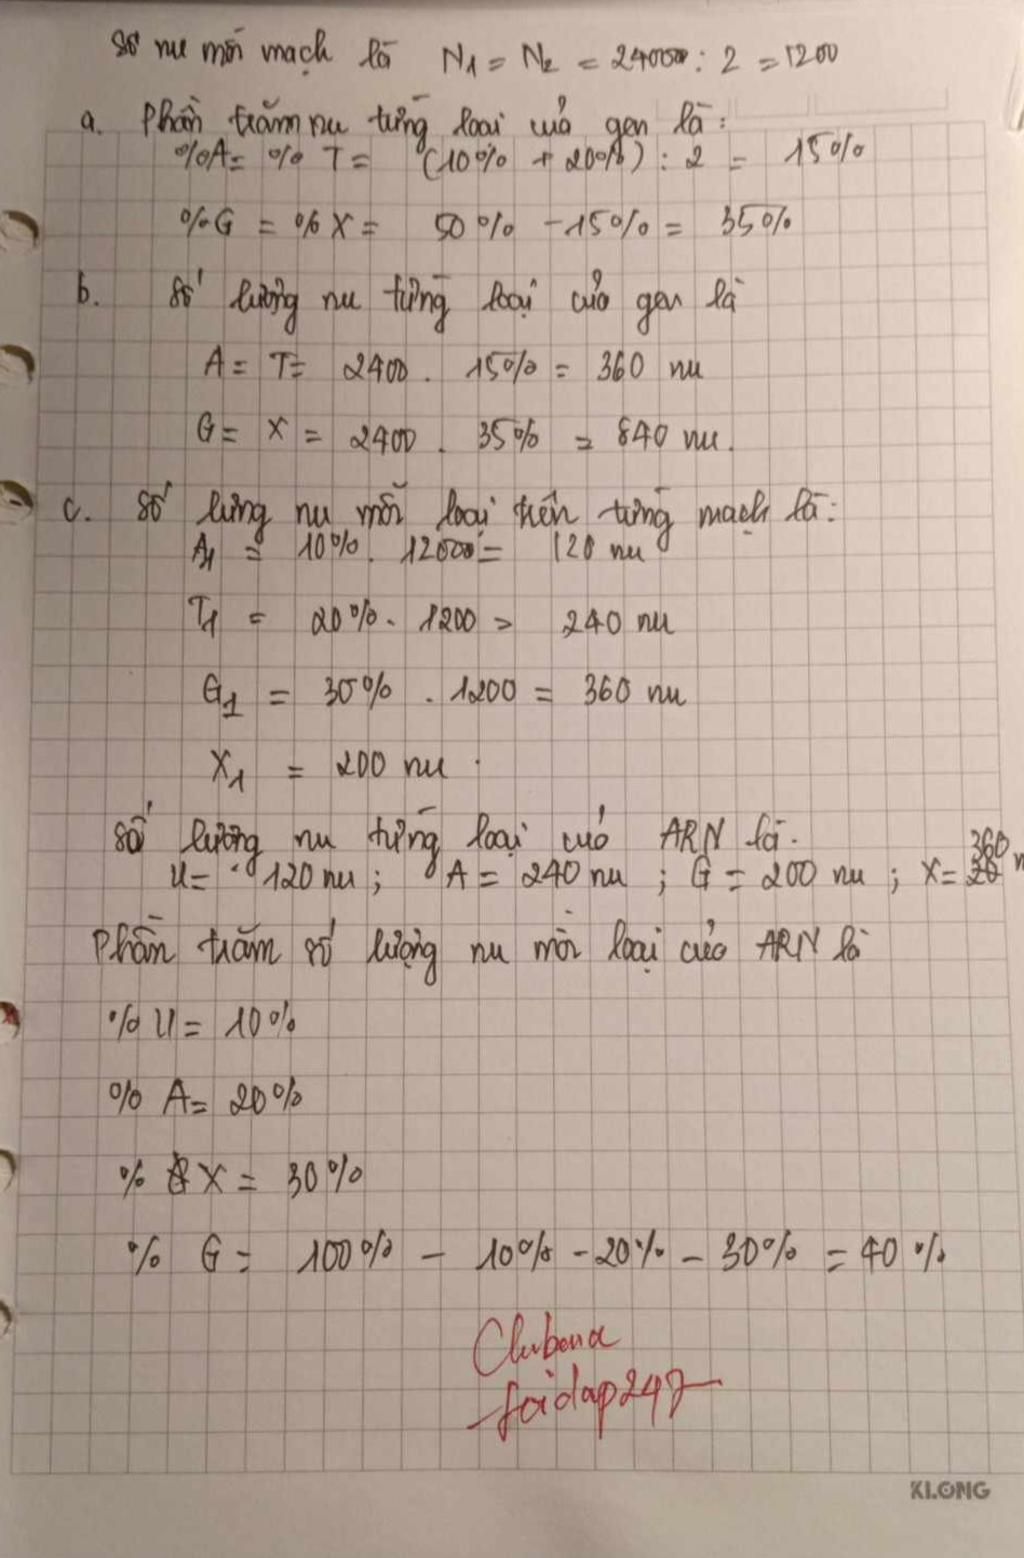 Số nu mỗi mạch là N1 = N2 = 2400 : 2 = 1200
a. Phần trăm nu từng loại của gen là:
%A = % T = (10% + 20%) : 2 = 15%
%G = % X = 50% - 15% = 35%
b. Số lượng nu từng loại của gen là
A = T = 2400 . 15% = 360 nu
G = X = 2400 . 35% = 840 nu.
c. Số lượng nu mỗi loại trên từng mạch là:
A1 = 10% . 1200 = 120 nu
T1 = 20% . 1200 = 240 nu
G1 = 30% . 1200 = 360 nu
X1 = 200 nu
Số lượng nu từng loại của ARN là.
U = 120 nu ; A = 240 nu ; G = 200 nu ; X = 360 n
Phần trăm số lượng nu mỗi loại của ARN là
% U = 10%
% A = 20%
% X = 30%
% G = 100% - 10% - 20% - 30% = 40 %
loidap247
KLONG